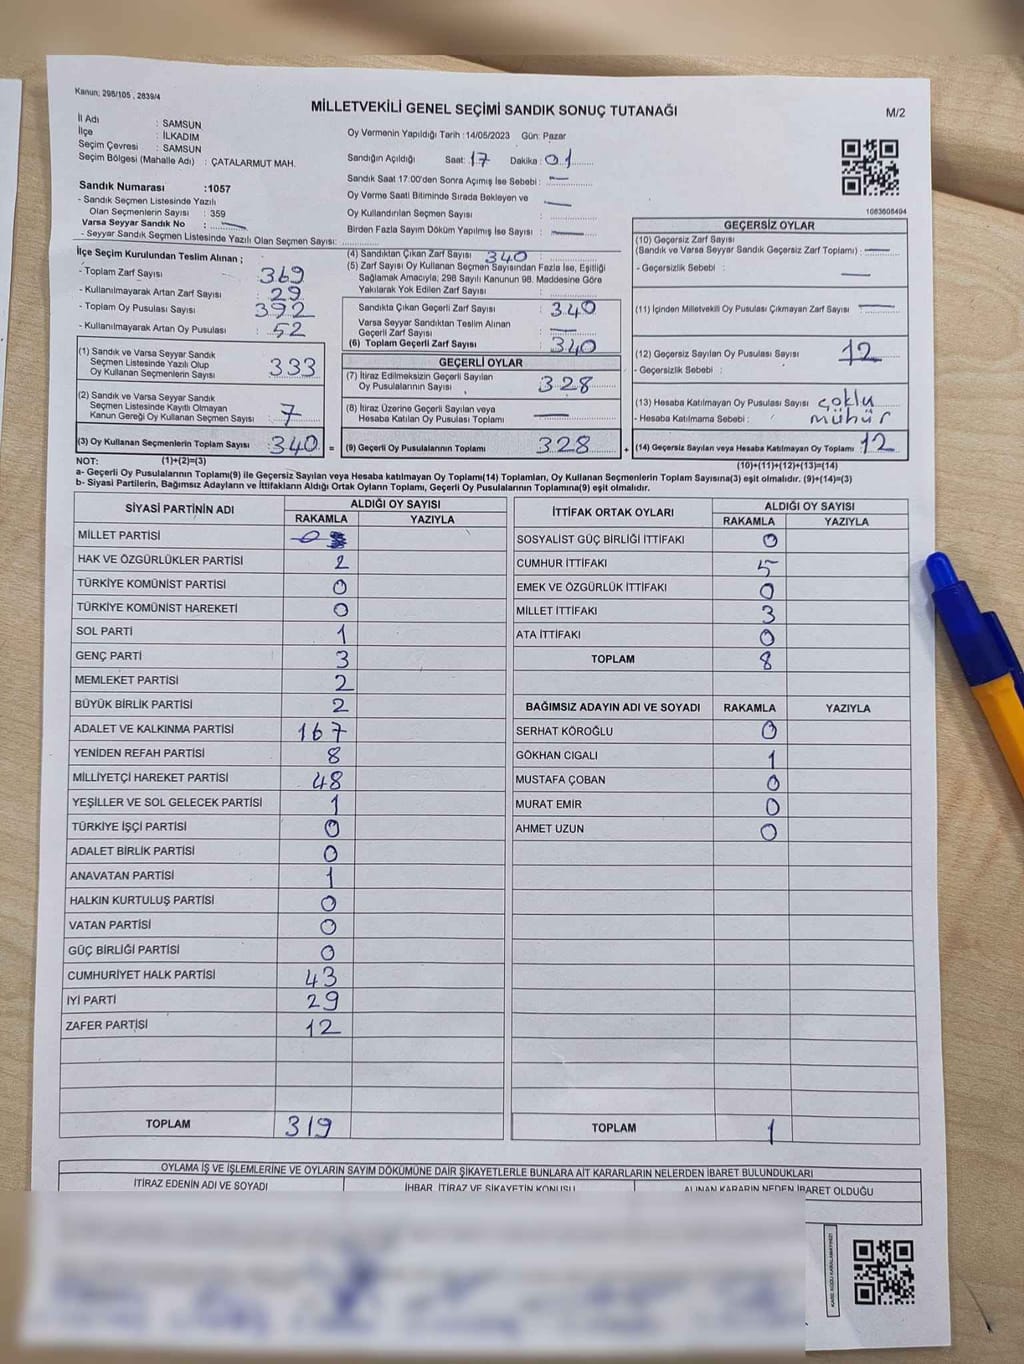 Kanun: 298/105 , 2839/4
MİLLETVEKİLİ GENEL SEÇİMİ SANDIK SONUÇ TUTANAĞI
M/2
İl Adı : SAMSUN
İlçe : İLKADIM
Seçim Çevresi : SAMSUN
Seçim Bölgesi (Mahalle Adı) : ÇATALARMUT MAH.
Sandık Numarası :1057
- Sandık Seçmen Listesinde Yazılı
Olan Seçmenlerin Sayısı : 359
Varsa Seyyar Sandık No : —
- Seyyar Sandık Seçmen Listesinde Yazılı Olan Seçmen Sayısı:
Oy Vermenin Yapıldığı Tarih :14/05/2023 Gün: Pazar
Sandığın Açıldığı Saat: 17 Dakika : 01
Sandık Saat 17:00'den Sonra Açımış İse Sebebi : —
Oy Verme Saati Bitiminde Sırada Bekleyen ve
Oy Kullandırılan Seçmen Sayısı : —
Birden Fazla Sayım Döküm Yapılmış İse Sayısı : —
1083608494
İlçe Seçim Kurulundan Teslim Alınan ;
- Toplam Zarf Sayısı : 369
- Kullanılmayarak Artan Zarf Sayısı : 29
- Toplam Oy Pusulası Sayısı : 392
- Kullanılmayarak Artan Oy Pusulası : 52
(1) Sandık ve Varsa Seyyar Sandık
Seçmen Listesinde Yazılı Olup
Oy Kullanan Seçmenlerin Sayısı : 333
(2) Sandık ve Varsa Seyyar Sandık
Seçmen Listesinde Kayıtlı Olmayan
Kanun Gereği Oy Kullanan Seçmen Sayısı : 7
(3) Oy Kullanan Seçmenlerin Toplam Sayısı : 340 =
(4) Sandıktan Çıkan Zarf Sayısı : 340
(5) Zarf Sayısı Oy Kullanan Seçmen Sayısından Fazla İse, Eşitliği
Sağlamak Amacıyla, 298 Sayılı Kanunun 98. Maddesine Göre
Yakılarak Yok Edilen Zarf Sayısı :
Sandıkta Çıkan Geçerli Zarf Sayısı : 340
Varsa Seyyar Sandıktan Teslim Alınan
Geçerli Zarf Sayısı : —
(6) Toplam Geçerli Zarf Sayısı : 340
GEÇERLİ OYLAR
(7) İtiraz Edilmeksizin Geçerli Sayılan
Oy Pusulalarının Sayısı : 328
(8) İtiraz Üzerine Geçerli Sayılan veya
Hesaba Katılan Oy Pusulaları Toplamı : —
(9) Geçerli Oy Pusulalarının Toplamı : 328 +
GEÇERSİZ OYLAR
(10) Geçersiz Zarf Sayısı
(Sandık ve Varsa Seyyar Sandık Geçersiz Zarf Toplamı) : —
- Geçersizlik Sebebi : —
(11) İçinden Milletvekili Oy Pusulası Çıkmayan Zarf Sayısı : —
(12) Geçersiz Sayılan Oy Pusulası Sayısı : 12
- Geçersizlik Sebebi :
(13) Hesaba Katılmayan Oy Pusulası Sayısı : çoklu
- Hesaba Katılmama Sebebi : mühür
(14) Geçersiz Sayılan veya Hesaba Katılmayan Oy Toplamı : 12
NOT: (1)+(2)=(3)
(10)+(11)+(12)+(13)=(14)
a- Geçerli Oy Pusulalarının Toplamı(9) ile Geçersiz Sayılan veya Hesaba katılmayan Oy Toplamı(14) Toplamları, Oy Kullanan Seçmenlerin Toplam Sayısına(3) eşit olmalıdır. (9)+(14)=(3)
b- Siyasi Partilerin, Bağımsız Adayların ve İttifakların Aldığı Ortak Oyların Toplamı, Geçerli Oy Pusulalarının Toplamına(9) eşit olmalıdır.
SİYASİ PARTİNİN ADI ALDIĞI OY SAYISI
RAKAMLA YAZIYLA
MİLLET PARTİSİ 0
HAK VE ÖZGÜRLÜKLER PARTİSİ 2
TÜRKİYE KOMÜNİST PARTİSİ 0
TÜRKİYE KOMÜNİST HAREKETİ 0
SOL PARTİ 1
GENÇ PARTİ 3
MEMLEKET PARTİSİ 2
BÜYÜK BİRLİK PARTİSİ 2
ADALET VE KALKINMA PARTİSİ 167
YENİDEN REFAH PARTİSİ 8
MİLLİYETÇİ HAREKET PARTİSİ 48
YEŞİLLER VE SOL GELECEK PARTİSİ 1
TÜRKİYE İŞÇİ PARTİSİ 0
ADALET BİRLİK PARTİSİ 0
ANAVATAN PARTİSİ 1
HALKIN KURTULUŞ PARTİSİ 0
VATAN PARTİSİ 0
GÜÇ BİRLİĞİ PARTİSİ 0
CUMHURİYET HALK PARTİSİ 43
İYİ PARTİ 29
ZAFER PARTİSİ 12
TOPLAM 319
İTTİFAK ORTAK OYLARI ALDIĞI OY SAYISI
RAKAMLA YAZIYLA
SOSYALİST GÜÇ BİRLİĞİ İTTİFAKI 0
CUMHUR İTTİFAKI 5
EMEK VE ÖZGÜRLÜK İTTİFAKI 0
MİLLET İTTİFAKI 3
ATA İTTİFAKI 0
TOPLAM 8
BAĞIMSIZ ADAYIN ADI VE SOYADI RAKAMLA YAZIYLA
SERHAT KÖROĞLU 0
GÖKHAN CIGALI 1
MUSTAFA ÇOBAN 0
MURAT EMİR 0
AHMET UZUN 0
TOPLAM 1
OYLAMA İŞ VE İŞLEMLERİNE VE OYLARIN SAYIM DÖKÜMÜNE DAİR ŞİKAYETLERLE BUNLARA AİT KARARLARIN NELERDEN İBARET BULUNDUKLARI
İTİRAZ EDENİN ADI VE SOYADI İHBAR, İTİRAZ VE ŞİKAYETİN KONUSU ALINAN KARARIN NEDEN İBARET OLDUĞU
KARE KODU KARALAMAYINIZ!